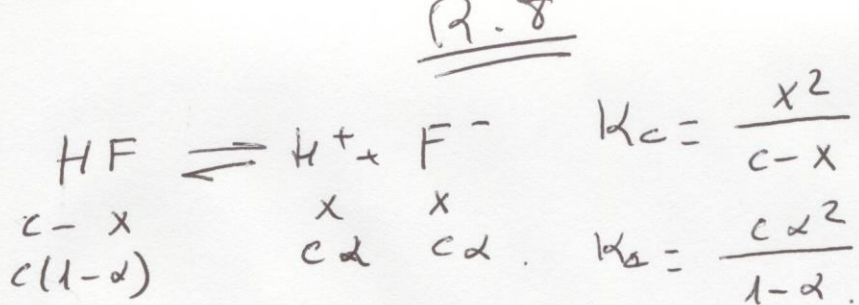 R.8
HF ⇌ H⁺ + F⁻ Kc = x²/(c-x)
c-x x x
c(1-α) cα cα. Ka = cα²/(1-α).